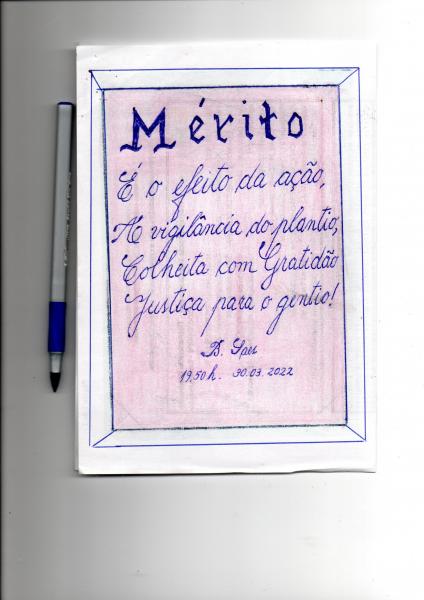 Mérito
É o efeito da ação,
A vigilância do plantio,
Colheita com Gratidão
Justiça para o gentio!
19,50h. 30.03.2022